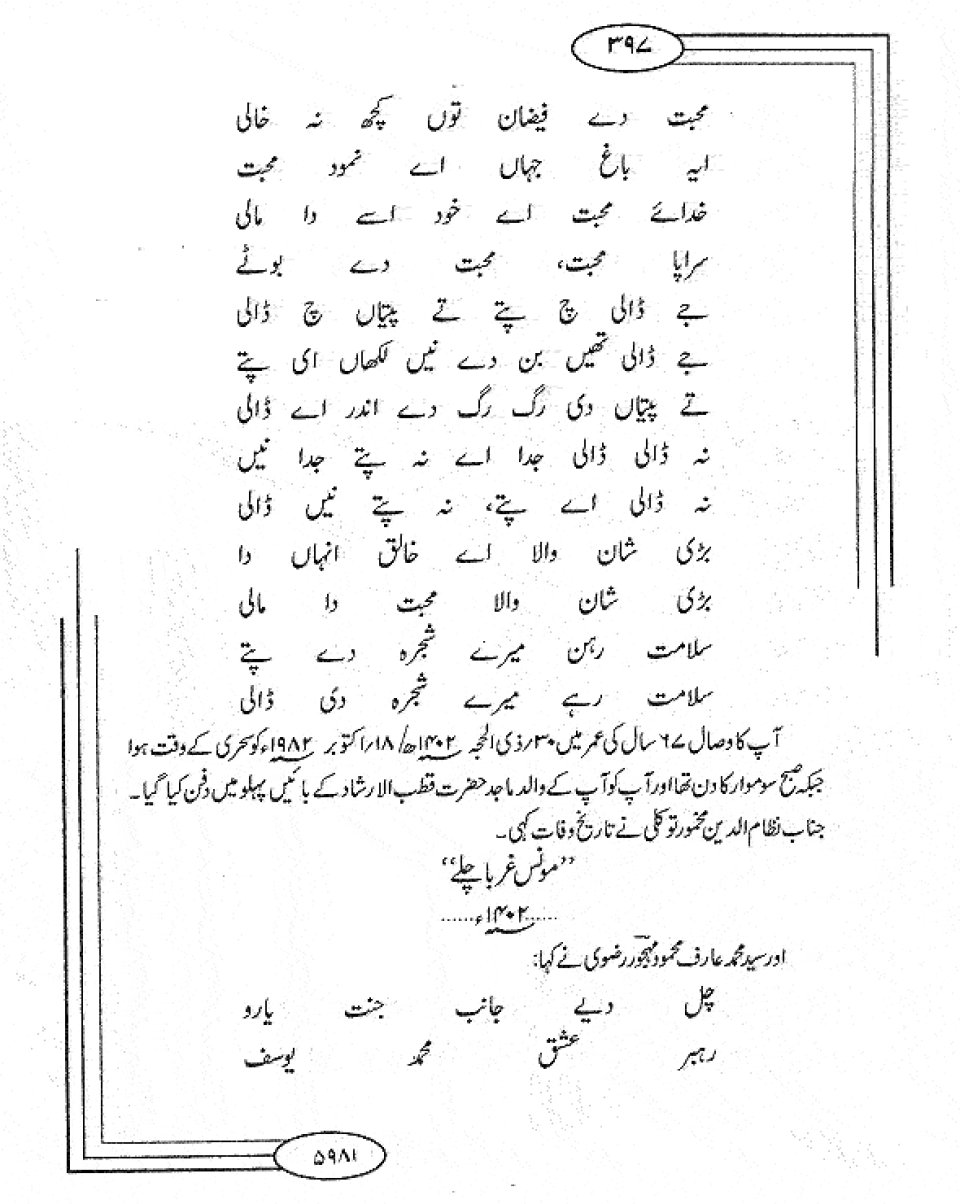 ۳۹۷
محبت دے فیضان توں کچھ نہ خالی
ایہ باغ جہاں اے نمود محبت
خدائے محبت اے خود اسے دا مالی
سراپا محبت، محبت دے بوٹے
جے ڈالی چ پتے تے پتیاں چ ڈالی
جے ڈالی تھیں بن دے نیں لکھاں ای پتے
تے پتیاں دی رگ رگ دے اندر اے ڈالی
نہ ڈالی ڈالی جدا اے نہ پتے جدا نیں
نہ ڈالی اے پتے، نہ پتے نیں ڈالی
بڑی شان والا اے خالق انہاں دا
بڑی شان والا محبت دا مالی
سلامت رہن میرے شجرہ دے پتے
سلامت رہے میرے شجرہ دی ڈالی
آپ کا وصال ۶۷ سال کی عمر میں ۳۰؍ذی الحجہ ۱۴۰۲ھ/۱۸؍اکتوبر ۱۹۸۲ء کو سحری کے وقت ہوا
جبکہ صبح سوموار کا دن تھا اور آپ کو آپ کے والد ماجد حضرت قطب الارشاد کے بائیں پہلو میں دفن کیا گیا۔
جناب نظام الدین مخمور توکلی نے تاریخ وفات کہی۔
”مونس غربا چلے“
......۱۴۰۲ء......
اور سید محمد عارف محمود مہجور رضوی نے کہا:
چل دیے جانب جنت یارو
رہبر عشق محمد یوسف
۵۹۸۱